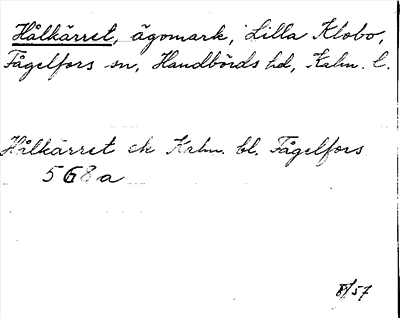 Hålkärret, ägomark, Lilla Klobo,
Fågelfors sn, Handbörds hd, Kalm. l.
Hålkärret ek Kalm. bl. Fågelfors
568a
8/57